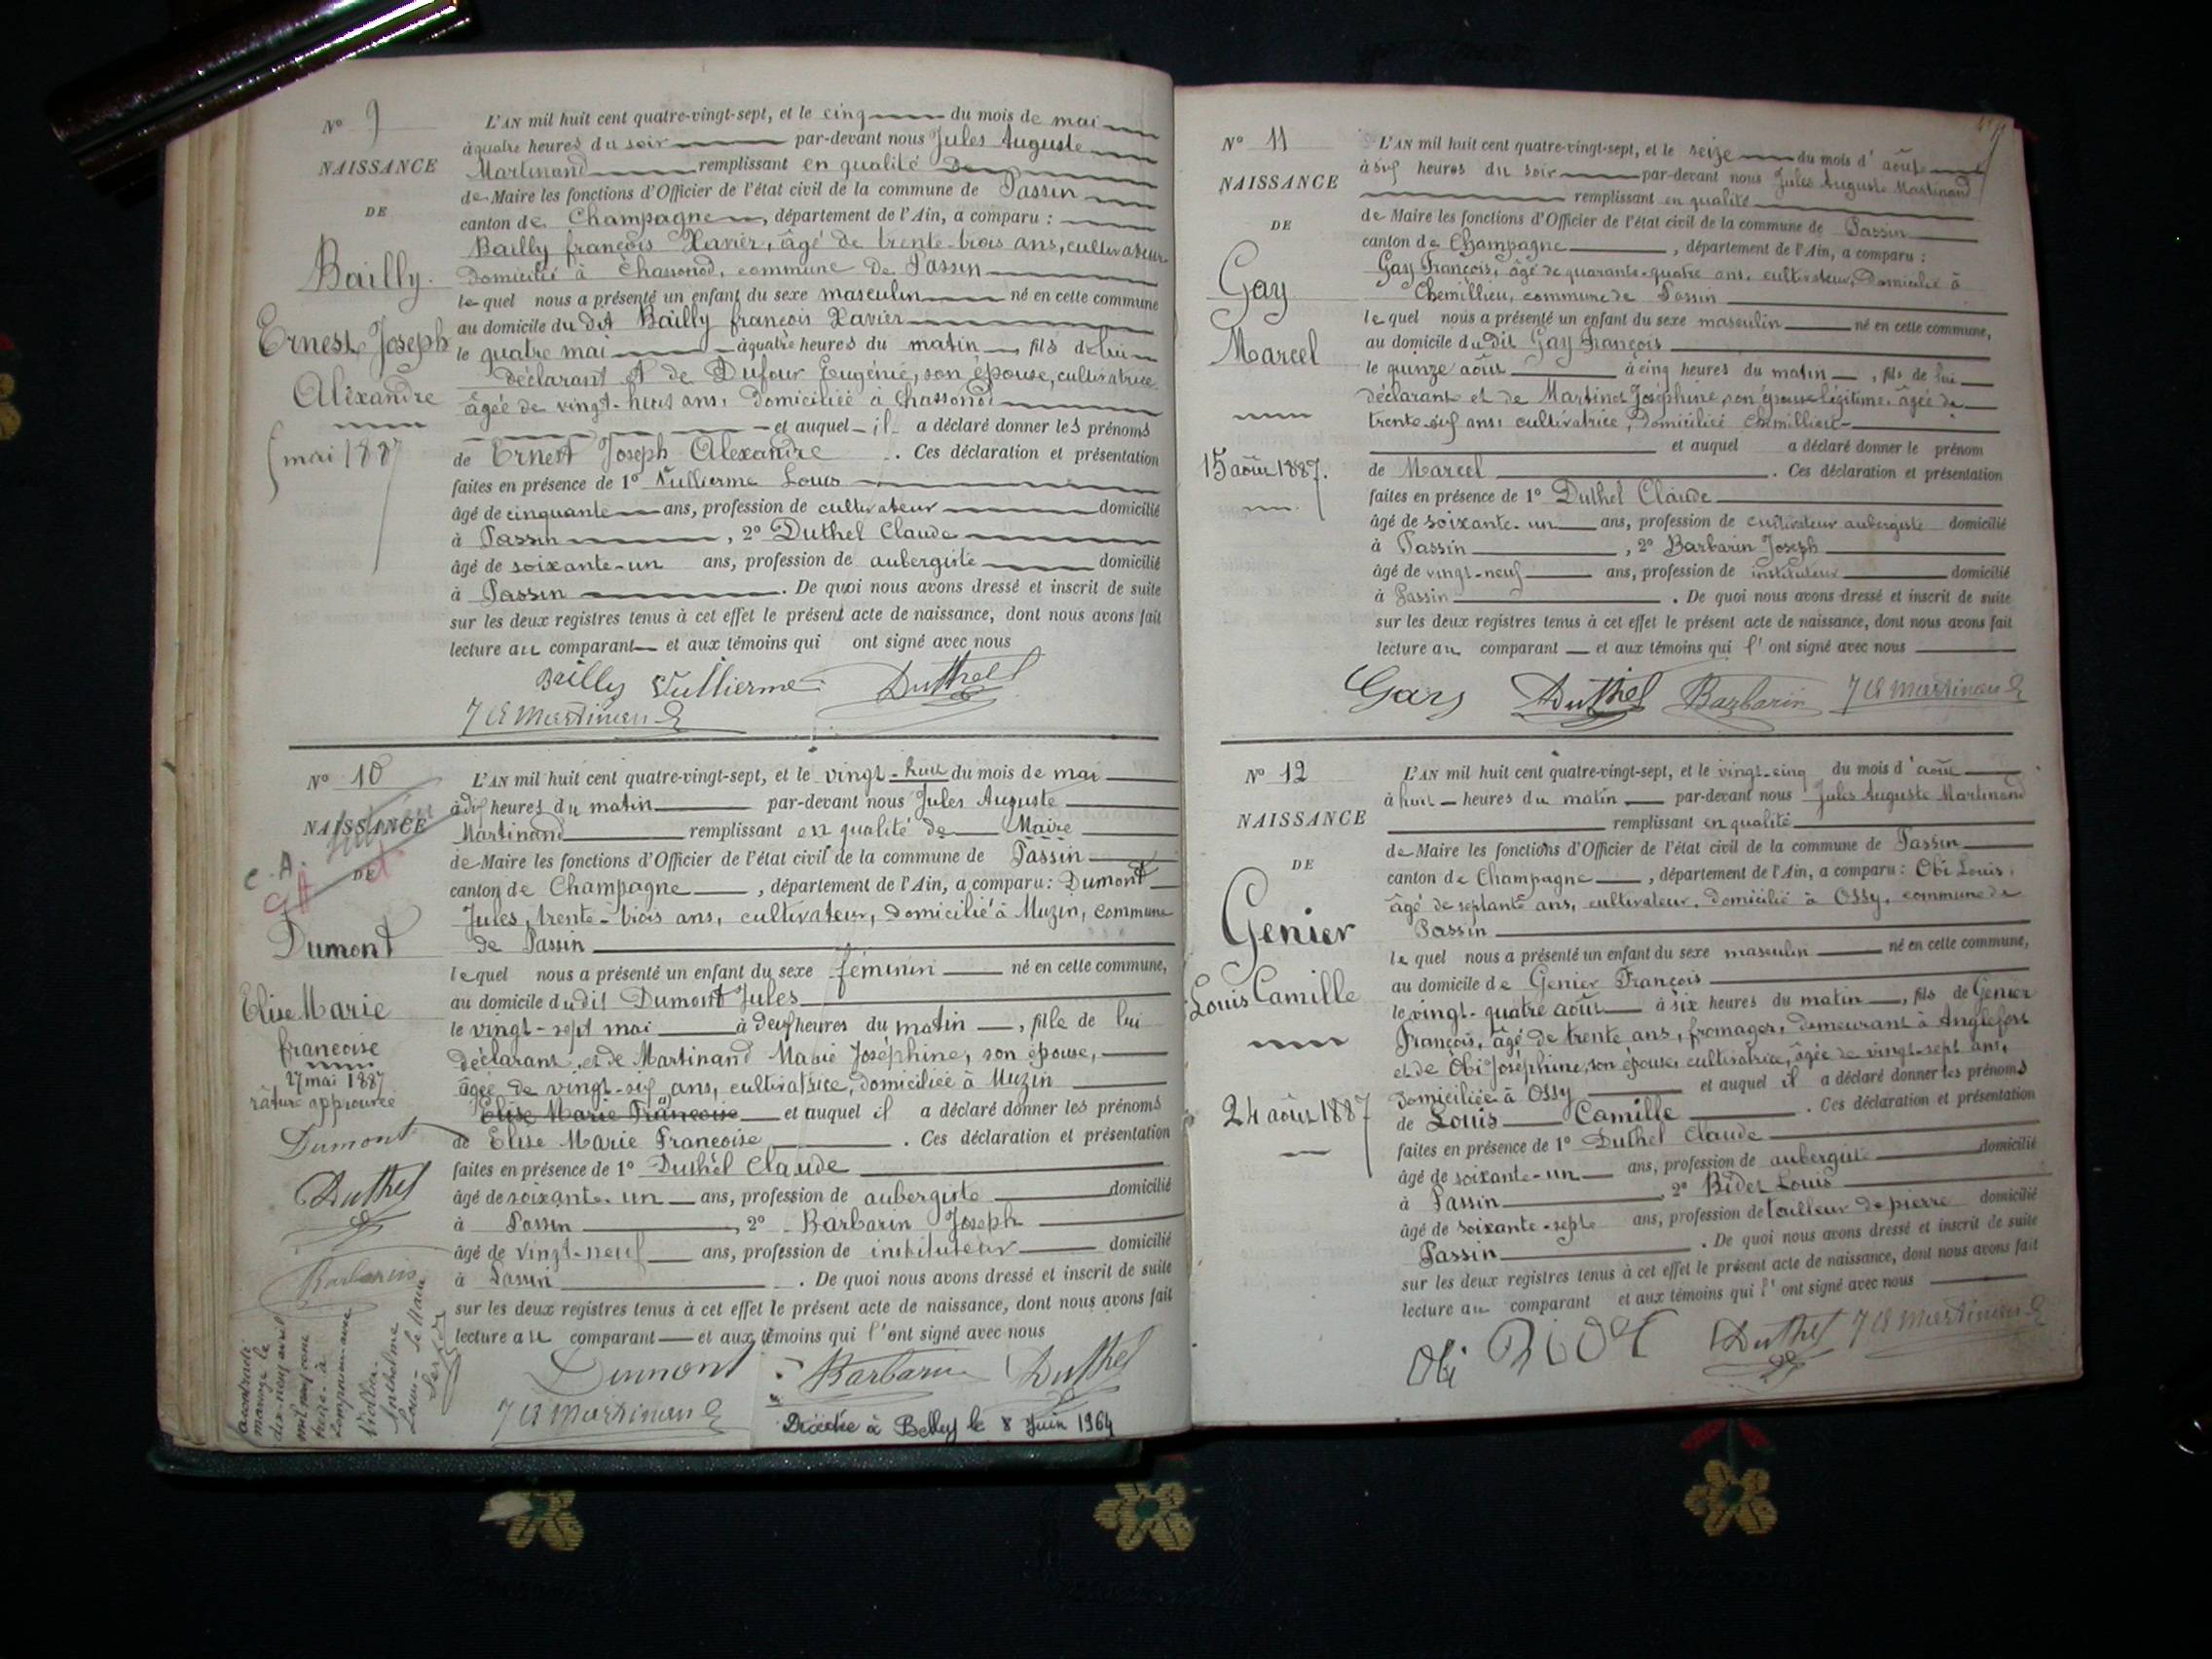 N° 9
NAISSANCE
DE
Bailly
Ernest Joseph
Alexandre
mai 1887
L'AN mil huit cent quatre-vingt-sept, et le cinq du mois de mai
à quatre heures du soir par-devant nous Jules Auguste
Martinand remplissant en qualité de
de Maire les fonctions d'Officier de l'état civil de la commune de Passin
canton de Champagne, département de l'Ain, a comparu :
Bailly françois Xavier, âgé de trente-trois ans, cultivateur
domicilié à Chassonod, commune de Passin
lequel nous a présenté un enfant du sexe masculin né en cette commune
au domicile du dit Bailly françois Xavier
le quatre mai à quatre heures du matin, fils de lui
déclarant et de Dufour Eugénie, son épouse, cultivatrice
âgée de vingt-huit ans, domiciliée à Chassonod
et auquel il a déclaré donner les prénoms
de Ernest Joseph Alexandre . Ces déclaration et présentation
faites en présence de 1° Vullierme Louis
âgé de cinquante ans, profession de cultivateur domicilié
à Passin, 2° Duthel Claude
âgé de soixante-un ans, profession de aubergiste domicilié
à Passin . De quoi nous avons dressé et inscrit de suite
sur les deux registres tenus à cet effet le présent acte de naissance, dont nous avons fait
lecture au comparant et aux témoins qui ont signé avec nous
Bailly Vullierme Duthel
J A Martinand
N° 10
NAISSANCE
DE
C. A.
Dumont
Elise Marie
francoise
27 mai 1887
rature approuvée
Dumont
Duthel
Barbarin
a contracté
mariage le
dix-neuf avril
mil neuf cent
treize à
avec
Anthelme
Louis - le Maire
L'AN mil huit cent quatre-vingt-sept, et le vingt-huit du mois de mai
à dix heures du matin par-devant nous Jules Auguste
Martinand remplissant en qualité de Maire
de Maire les fonctions d'Officier de l'état civil de la commune de Passin
canton de Champagne, département de l'Ain, a comparu : Dumont
Jules, trente-trois ans, cultivateur, domicilié à Muzin, commune
de Passin
lequel nous a présenté un enfant du sexe féminin né en cette commune,
au domicile du dit Dumont Jules
le vingt-sept mai à deux heures du matin, fille de lui
déclarant et de Martinand Marie Joséphine, son épouse,
âgée de vingt-six ans, cultivatrice, domiciliée à Muzin
Elise Marie Françoise et auquel il a déclaré donner les prénoms
de Elise Marie Francoise . Ces déclaration et présentation
faites en présence de 1° Duthel Claude
âgé de soixante-un ans, profession de aubergiste domicilié
à Passin, 2° Barbarin Joseph
âgé de vingt-neuf ans, profession de instituteur domicilié
à Passin . De quoi nous avons dressé et inscrit de suite
sur les deux registres tenus à cet effet le présent acte de naissance, dont nous avons fait
lecture au comparant et aux témoins qui l'ont signé avec nous
Dumont Barbarin Duthel
J A Martinand
Décédée à Belley le 8 Juin 1964
N° 11
NAISSANCE
DE
Gay
Marcel
15 août 1887.
L'AN mil huit cent quatre-vingt-sept, et le seize du mois d'août
à six heures du soir par-devant nous Jules Auguste Martinand
remplissant en qualité
de Maire les fonctions d'Officier de l'état civil de la commune de Passin
canton de Champagne, département de l'Ain, a comparu :
Gay François, âgé de quarante-quatre ans, cultivateur, domicilié à
Chemillieu, commune de Passin
lequel nous a présenté un enfant du sexe masculin né en cette commune,
au domicile du dit Gay François
le quinze août à cinq heures du matin, fils de lui
déclarant et de Martinod Joséphine, son épouse légitime, âgée de
trente-six ans, cultivatrice, domiciliée Chemillieu
et auquel a déclaré donner le prénom
de Marcel . Ces déclaration et présentation
faites en présence de 1° Duthel Claude
âgé de soixante-un ans, profession de cultivateur aubergiste domicilié
à Passin, 2° Barbarin Joseph
âgé de vingt-neuf ans, profession de instituteur domicilié
à Passin . De quoi nous avons dressé et inscrit de suite
sur les deux registres tenus à cet effet le présent acte de naissance, dont nous avons fait
lecture au comparant et aux témoins qui l'ont signé avec nous
Gay Duthel Barbarin J A Martinand
N° 12
NAISSANCE
DE
Genier
Louis Camille
24 août 1887
L'AN mil huit cent quatre-vingt-sept, et le vingt-cinq du mois d'août
à huit heures du matin par-devant nous Jules Auguste Martinand
remplissant en qualité
de Maire les fonctions d'Officier de l'état civil de la commune de Passin
canton de Champagne, département de l'Ain, a comparu : Obi Louis,
âgé de septante ans, cultivateur, domicilié à Ossy, commune de
Passin
lequel nous a présenté un enfant du sexe masculin né en cette commune,
au domicile de Genier François
le vingt-quatre août à six heures du matin, fils de Genier
François, âgé de trente ans, fromager, demeurant à Anglefort
et de Obi Joséphine, son épouse, cultivatrice, âgée de vingt-sept ans,
domiciliée à Ossy et auquel il a déclaré donner les prénoms
de Louis Camille . Ces déclaration et présentation
faites en présence de 1° Duthel Claude
âgé de soixante-un ans, profession de aubergiste domicilié
à Passin, 2° Bider Louis
âgé de soixante-sept ans, profession de tailleur de pierre domicilié
Passin . De quoi nous avons dressé et inscrit de suite
sur les deux registres tenus à cet effet le présent acte de naissance, dont nous avons fait
lecture au comparant et aux témoins qui l'ont signé avec nous
Obi Duthel J A Martinand